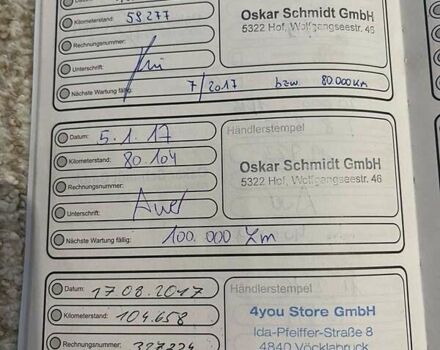 Kilometerstand: 58277
Oskar Schmidt GmbH
5322 Hof, Wolfgangseestr. 46
Rechnungsnummer:
Unterschrift:
Nächste Wartung fällig: 7/2017 bzw. 80.000Km
Datum: 5.1.17
Händlerstempel
Kilometerstand: 80.104
Oskar Schmidt GmbH
5322 Hof, Wolfgangseestr. 46
Rechnungsnummer:
Unterschrift: Auer
Nächste Wartung fällig: 100.000 Km
Datum: 17.08.2017
Händlerstempel
Kilometerstand: 104.658
4you Store GmbH
Ida-Pfeiffer-Straße 8
Rechnungsnummer: 327224
4840 Vöcklabruck